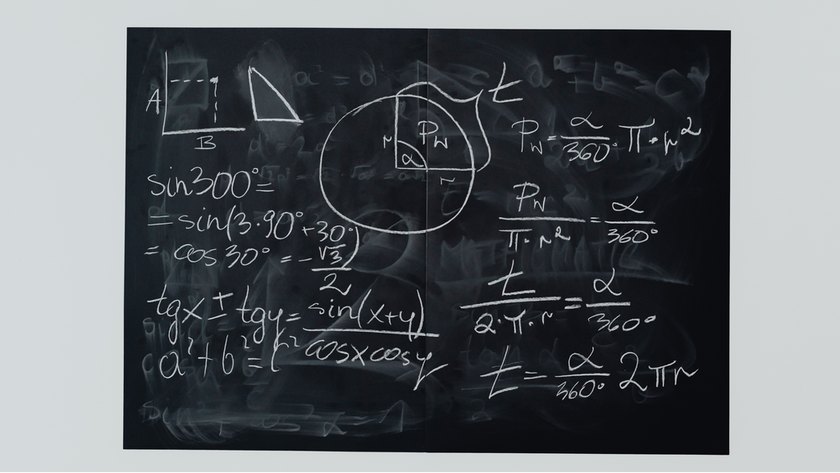 A
B
sin300°=
=sin(3·90°+30°)
= cos30° = -√3/2
tgx ± tgy = sin(x+y)/cosxcosy
a²+b²=c²
t
r Pw
α
r
Pw = α/360° · π·r²
Pw/π·r² = α/360°
t/2·π·r = α/360°
t = α/360° 2πr